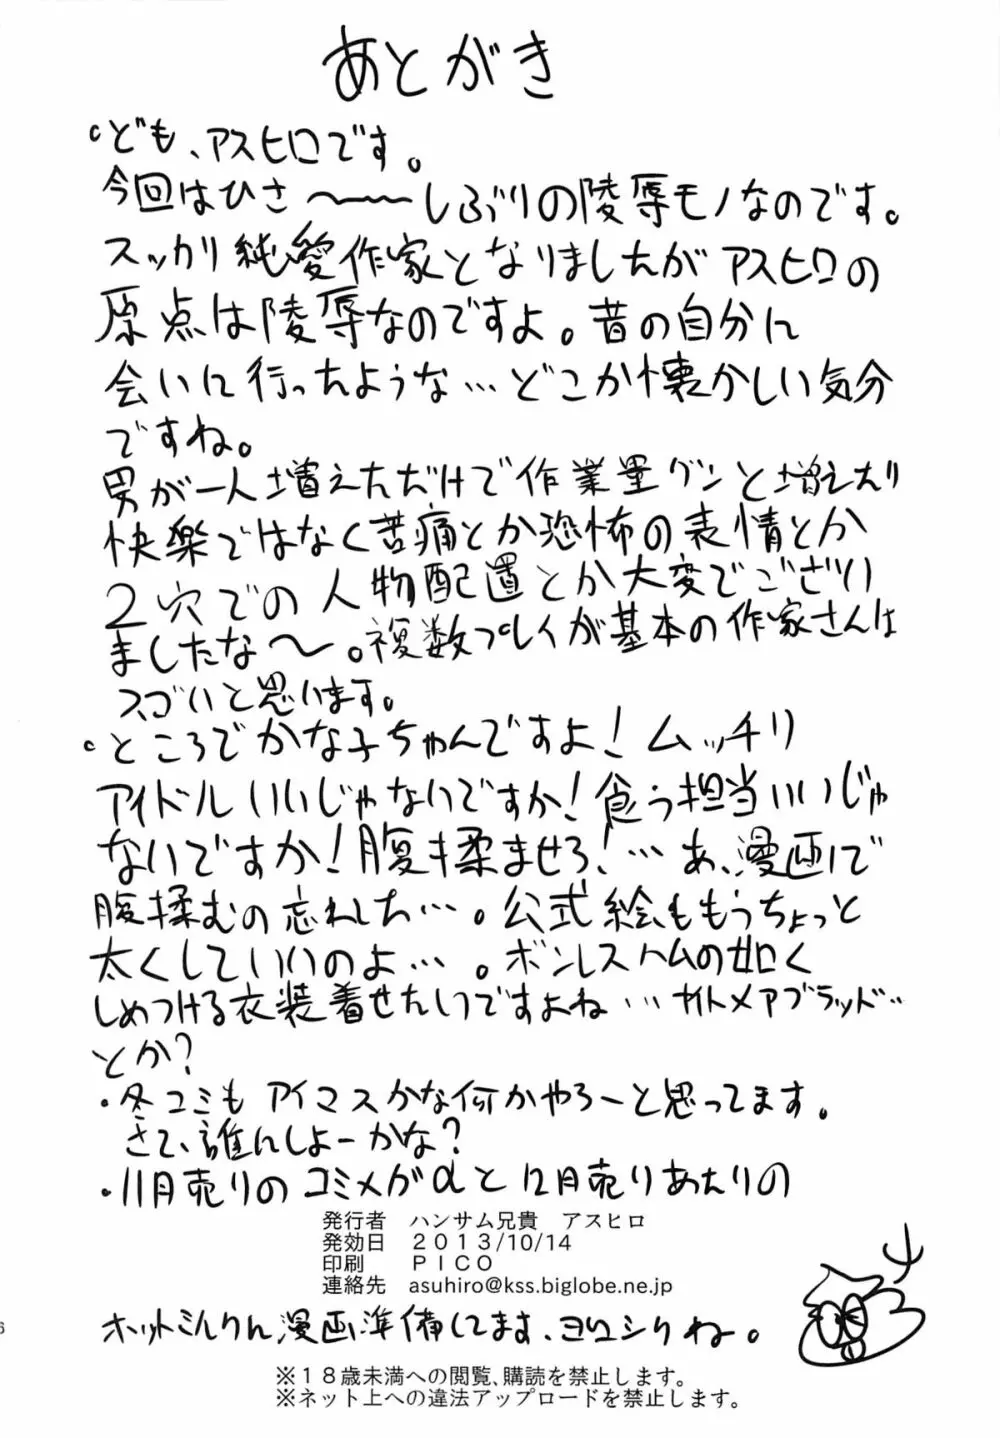 あとがき
。ども、アスヒロです。
今回はひさ〜〜〜しぶりの陵辱モノなのです。
スッカリ純愛作家となりましたがアスヒロの
原点は陵辱なのですよ。昔の自分に
会いに行ったような…どこか懐かしい気分
ですね。
男が一人増えただけで作業量グンと増えたり
快楽ではなく苦痛とか恐怖の表情とか
2穴での人物配置とか大変でござい
ましたな〜。複数プレイが基本の作家さんは
スゴいと思います。
。ところでかな子ちゃんですよ!ムッチリ
アイドルいいじゃないですか!食う担当いいじゃ
ないですか!腹揉ませろ!…あ、漫画で
腹揉むの忘れした…。公式絵ももうちょっと
太くしていいのよ…。ボンレスハムの如く
しめつける衣装着せたいですよね…ナイトメアブラッド…
とか?
・冬コミもアイマスかな何かやろーと思ってます。
さて、誰んしよーかな?
・11月売りのコミメガαと12月売りあたりの
発行者 ハンサム兄貴 アスヒロ
発効日 2013/10/14
印刷 PICO
連絡先 asuhiro@kss.biglobe.ne.jp
ホットミルクん漫画準備してます、ヨロシクね。
6
※18歳未満への閲覧、購読を禁止します。
※ネット上への違法アップロードを禁止します。